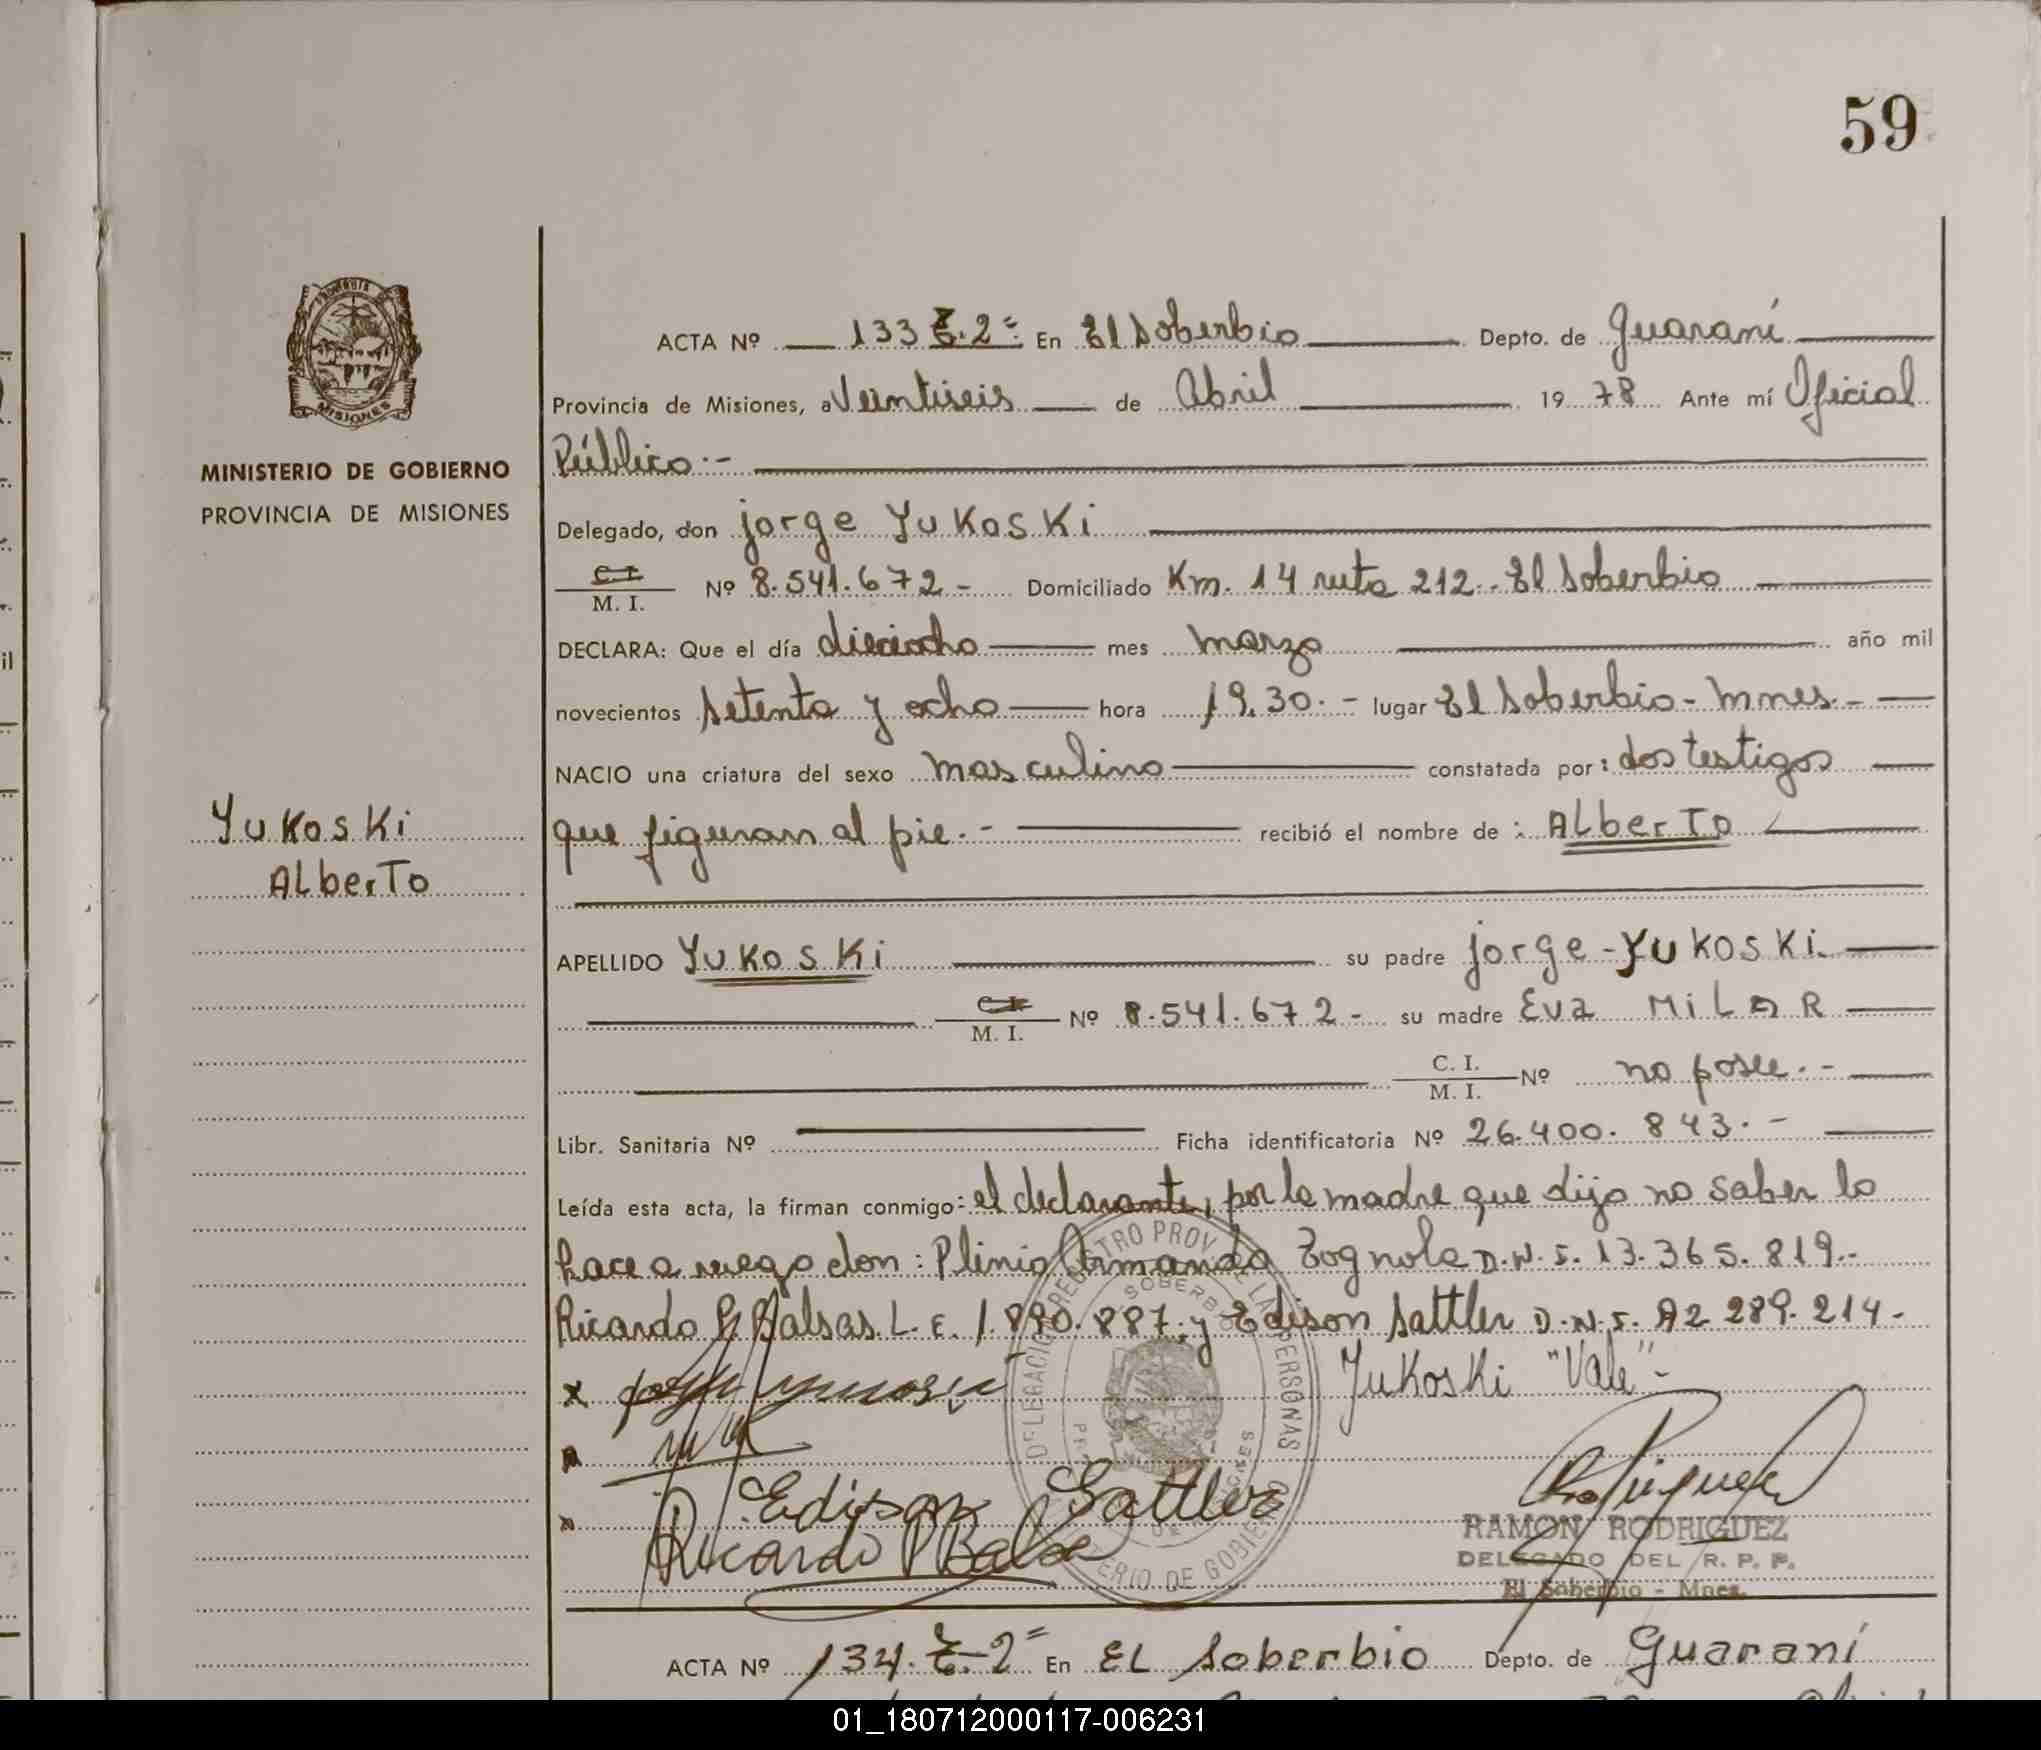 59
ACTA Nº 133 T. 2º En El Soberbio Depto. de Guaraní
Provincia de Misiones, a Veintiseis de Abril 19 78 Ante mí Oficial
Público.-
MINISTERIO DE GOBIERNO
PROVINCIA DE MISIONES
Delegado, don jorge YuKosKi
C I
M. I. Nº 8.541.672- Domiciliado Km. 14 ruta 212.- El Soberbio
DECLARA: Que el día dieciocho mes marzo año mil
novecientos setenta y ocho hora 19,30.- lugar El Soberbio - Mnes.-
NACIO una criatura del sexo masculino constatada por: dos testigos
YuKosKi
ALberTo
que figuran al pie.- recibió el nombre de: ALberTo
APELLIDO YuKosKi su padre jorge - YuKosKi.
C I
M. I. Nº 8.541.672- su madre Eva MiLAR
C. I.
M. I. Nº no posee.-
Libr. Sanitaria Nº Ficha identificatoria Nº 26.400.843.-
Leída esta acta, la firman conmigo: el declarante, por la madre que dijo no saber lo
hace a ruego don: Plinio Armando Zognole D.N.I. 13.365.819.-
Ricardo P. Balsas L.E. 1.890.887. y Edison Sattler D.N.I. 289.214-
x YuKosKi "Vale"-
Edison Sattler
Ricardo P Balsa
RAMON RODRIGUEZ
DELEGADO DEL R. P. P.
El Soberbio - Mnes.
ACTA Nº 134. T. 2º En EL Soberbio Depto. de Guaraní
01_180712000117-006231